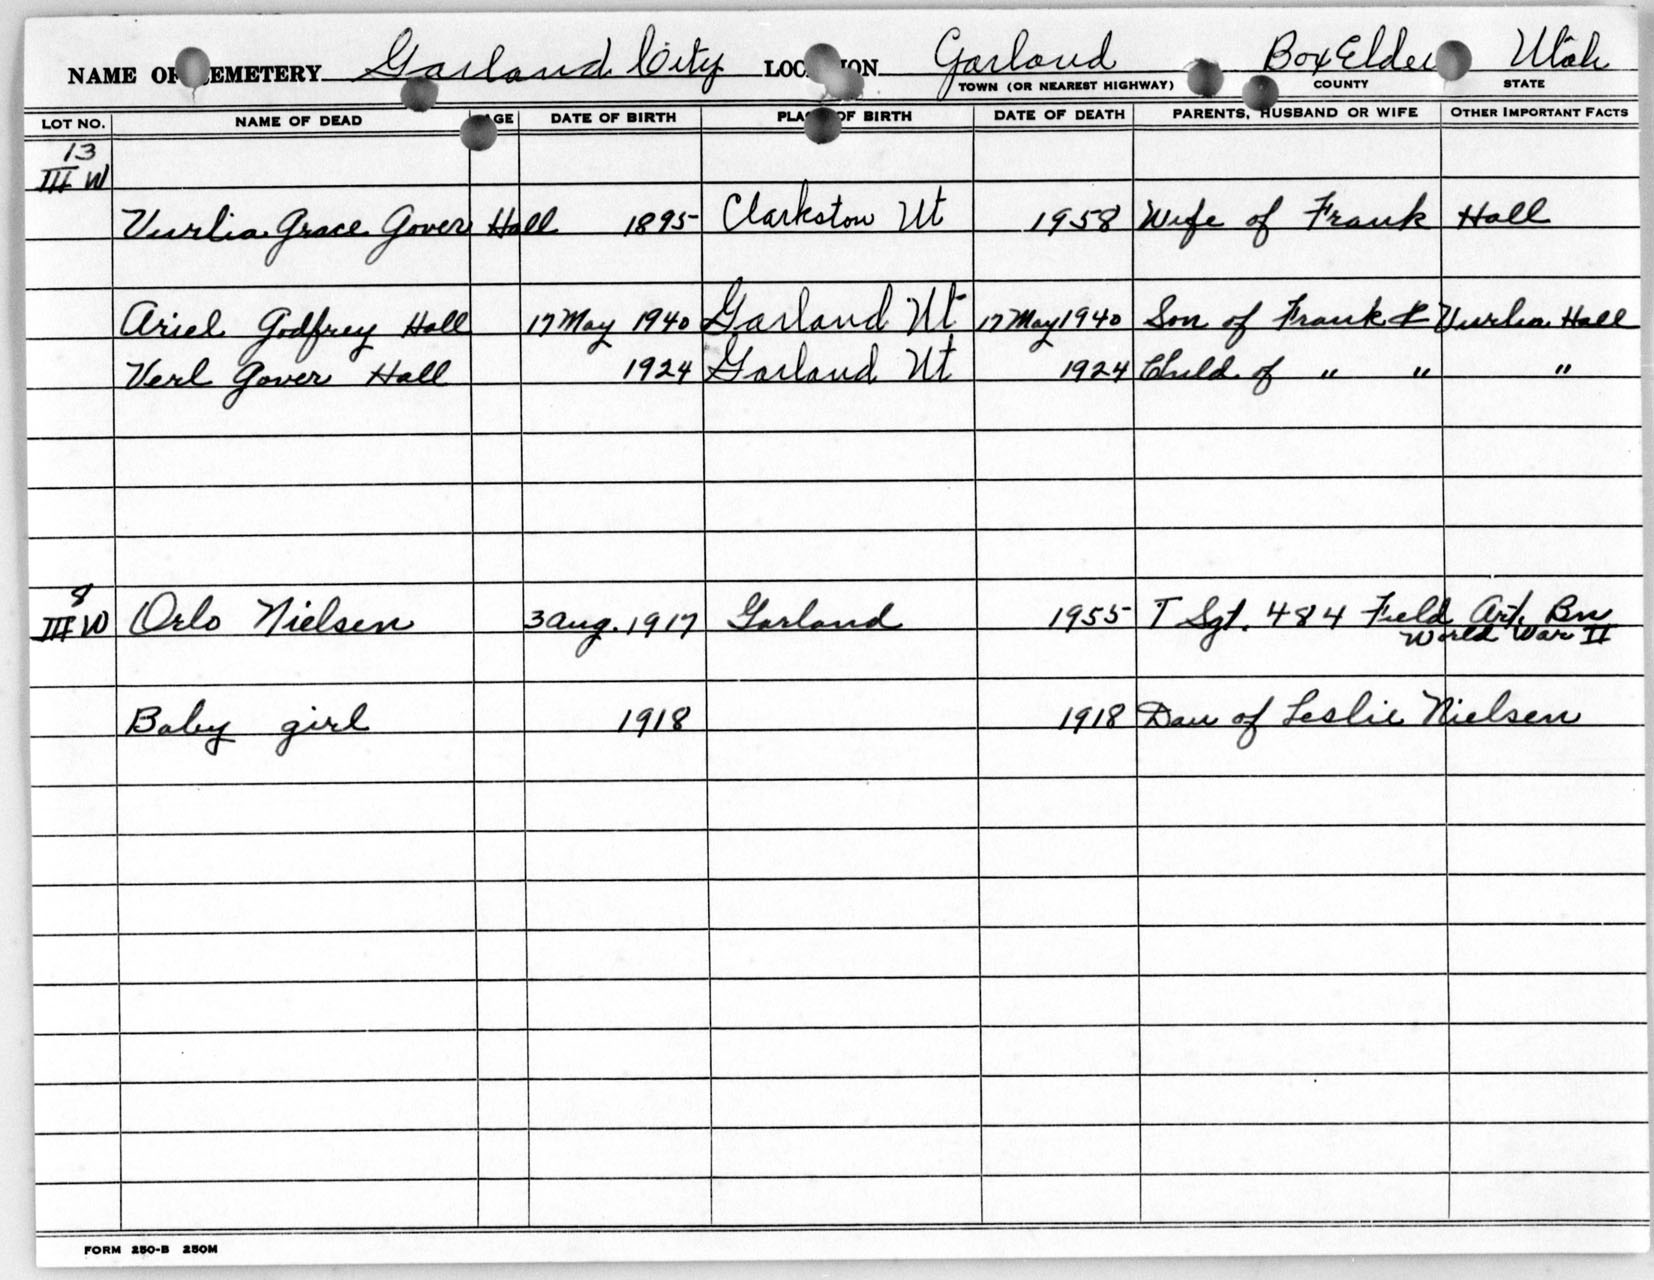 NAME OF CEMETERY Garland City LOCATION Garland Box Elder Utah
TOWN (OR NEAREST HIGHWAY) COUNTY STATE
LOT NO. NAME OF DEAD AGE DATE OF BIRTH PLACE OF BIRTH DATE OF DEATH PARENTS, HUSBAND OR WIFE OTHER IMPORTANT FACTS
13
III W
Vurlia Grace Gover Hall 1895 Clarkston Ut 1958 Wife of Frank Hall
Ariel Godfrey Hall 17 May 1940 Garland Ut 17 May 1940 Son of Frank & Vurlia Hall
Verl Gover Hall 1924 Garland Ut 1924 Child of " " "
8
III W Orlo Nielsen 3 Aug. 1917 Garland 1955 T Sgt. 484 Field Art. Bn
World War II
Baby girl 1918 1918 Dau of Leslie Nielsen
FORM 250-B 250M